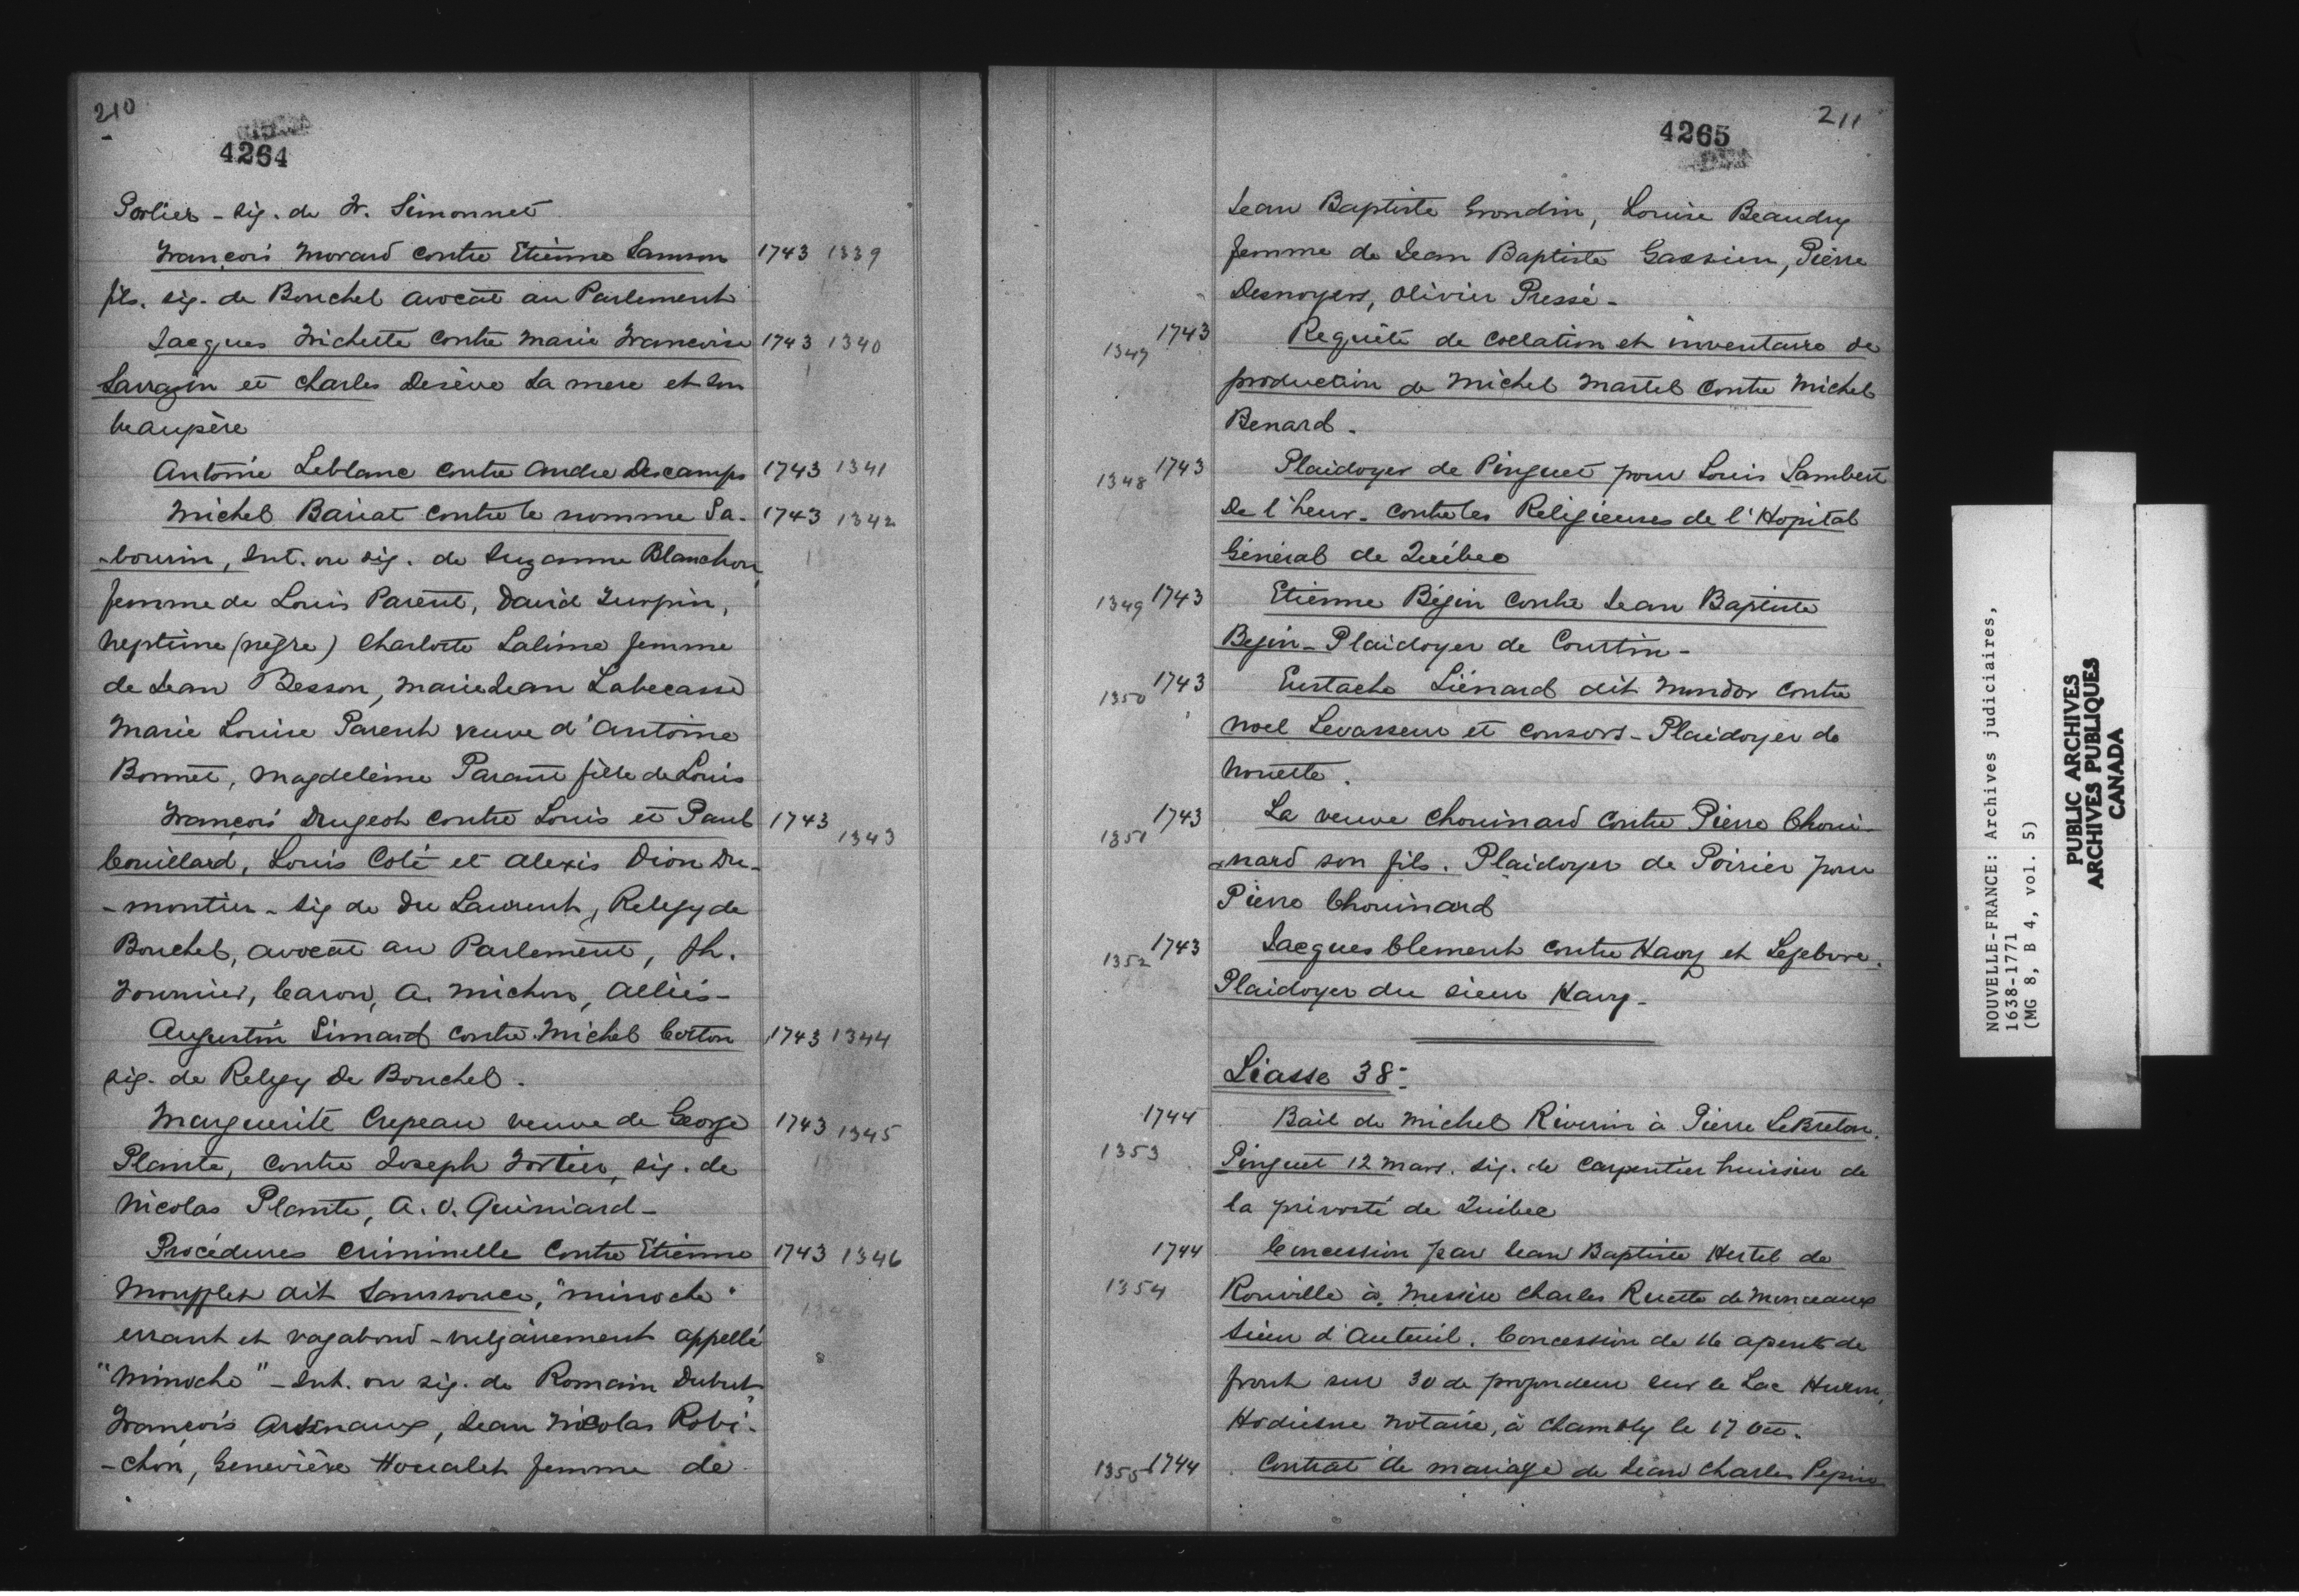 210
4264
Porlier - sig. de F. Simonnet
François Morand contre Etienne Samson 1743 1339
fils. sig. de Bouchel avocat au Parlement
Jacques Frichette contre Marie Francoise 1743 1340
Sarrazin et Charles Deséve sa mere et son
beaupère
Antoine Leblanc contre Andre Descamps 1743 1341
Michel Bariat contre le nomme Sa- 1743 1342
-bourin, Int. ou sig. de Suzanne Blanchon
femme de Louis Parent, David Turpin,
Neptune (nègre) Charlotte Salime femme
de Jean Besson, Marie Jean Labecasse
Marie Louise Parent veuve d'Antoine
Bonnet, Magdeleine Parant fille de Louis
François Drugeot contre Louis et Paul 1743 1343
Couillard, Louis Coté et Alexis Dion Du-
-montier - sig de Du Laurent, Relegy de
Bouchel, avocat au Parlement, Jh.
Fournier, Caron, A. Michon, Alliés-
Augustin Simard contre Michel Cotton 1743 1344
sig. de Relegy De Bouchel.
Marguerite Crepeau veuve de George 1743 1345
Plante, contre Joseph Fortier, sig. de
Nicolas Plante, A. O. Guiniard-
Procédures criminelle contre Etienne 1743 1346
Moufflet dit Sanssoucy, "minoche"
errant et vagabond - vulgairement appellé
"Minoche" - Int. ou sig. de Romain Dubut,
François Arsenaux, Jean Nicolas Robi-
-chon, Geneviève Houalet femme de
211
4265
Jean Baptiste Grondin, Louise Beaudry
femme de Jean Baptiste Gassien, Pierre
Desnoyers, Olivier Pressé -
1347 1743 Requête de collation et inventaire de
production de Michel Martel contre Michel
Benard.
1348 1743 Plaidoyer de Pinguet pour Louis Lambert
De l'heur. contre les Religieuses de l'Hopital
Général de Québec
1349 1743 Etienne Bégin contre Jean Baptiste
Begin - Plaidoyer de Courtin -
1350 1743 Eustache Liénard dit Mondor contre
Noel Levasseur et consors - Plaidoyer de
Nouette.
1351 1743 La veuve Chouinard contre Pierre Choui-
-nard son fils. Plaidoyer de Poirier pour
Pierre Chouinard
1352 1743 Jacques Clement contre Havy et Lefebvre.
Plaidoyer du sieur Havy -
Liasse 38:
1353 1744 Bail de Michel Riverin à Pierre LeBreton.
Pinguet 12 Mars. sig. de Carpentier huissier de
la prévosté de Québec
1354 1744 Concession par Jean Baptiste Hertel de
Rouville à Messire Charles Ruette de Monceaux
Sieur d'Auteuil. Concession de 16 apents de
front sur 30 de profondeur sur le Lac Huron,
Hodiesne notaire, à Chambly le 17 Oct.
1355 1744 Contrat de mariage de Jean Charles Pepin
NOUVELLE-FRANCE: Archives judiciaires,
1638-1771
(MG 8, B 4, vol. 5)
PUBLIC ARCHIVES
ARCHIVES PUBLIQUES
CANADA